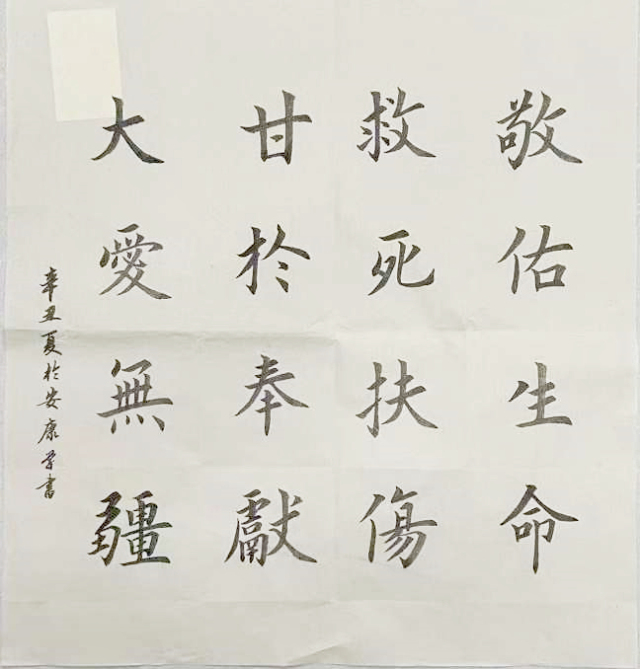 敬佑生命
救死扶傷
甘於奉獻
大愛無疆
辛丑夏於安康学書